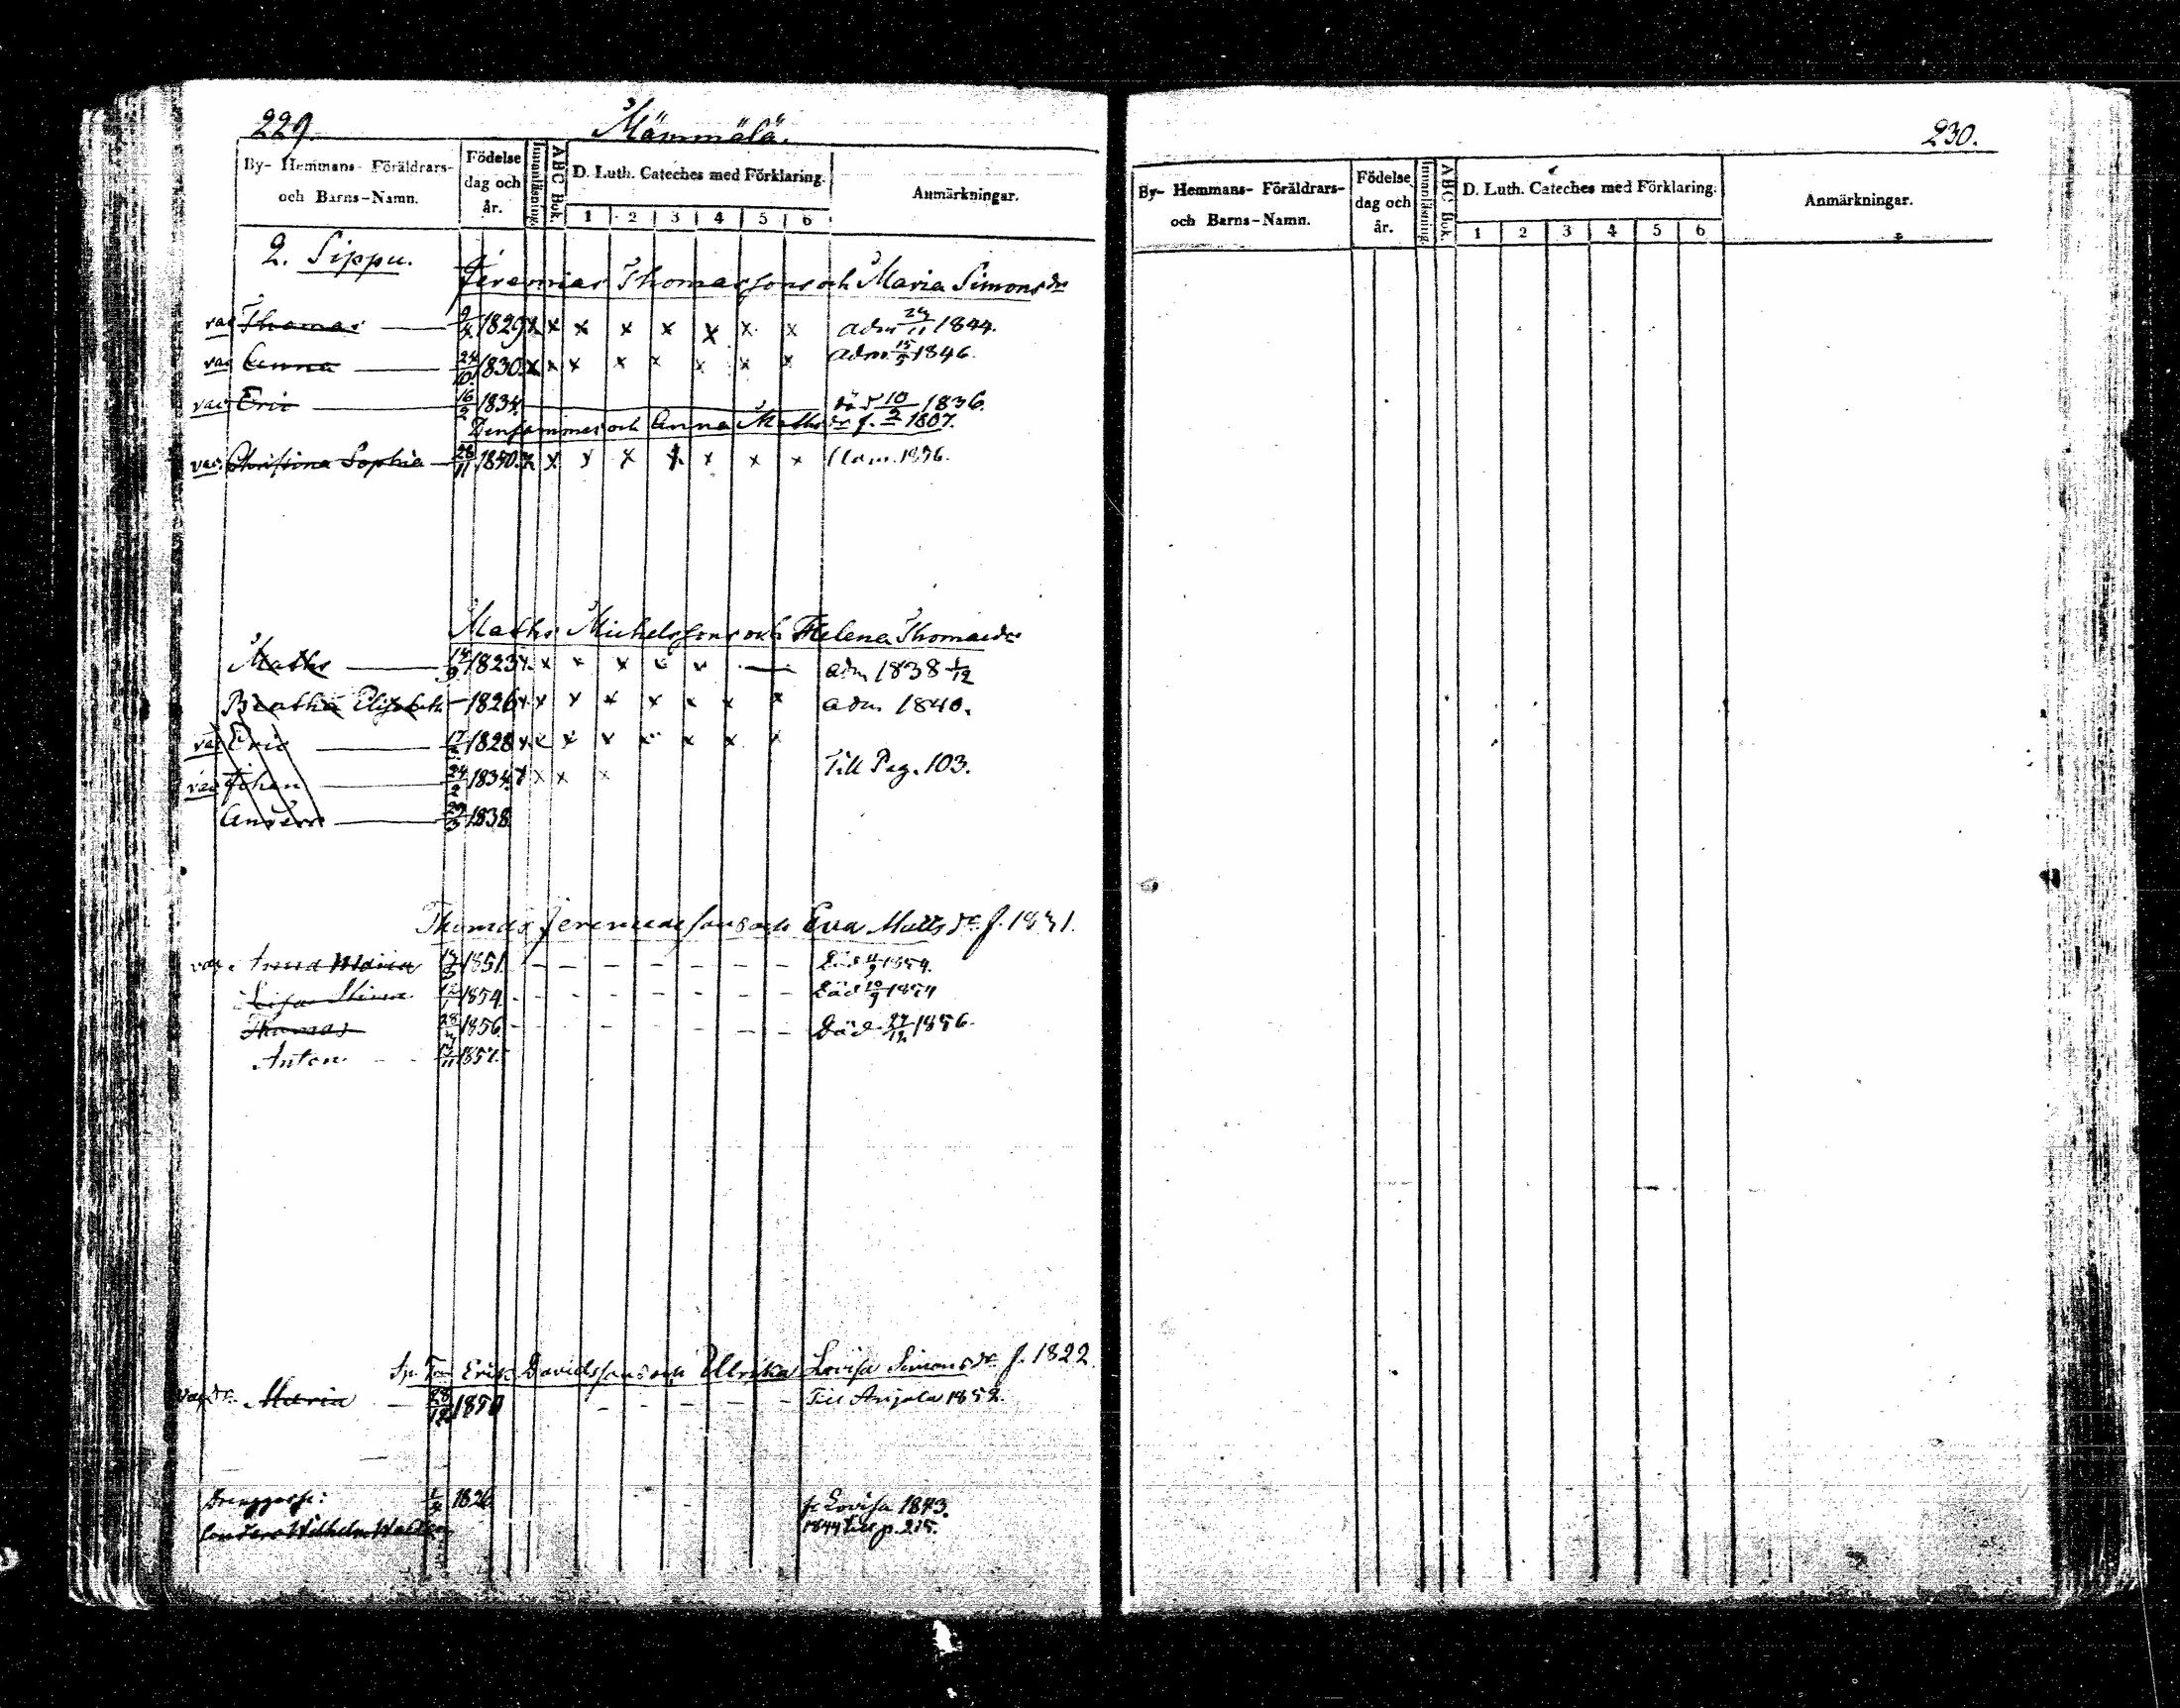 229.
Mämmälä.
By- Hemmans- Föräldrars- och Barns-Namn.
Födelse dag och år.
Innanläsning.
ABC Bok.
D. Luth. Cateches med Förklaring.
1 2 3 4 5 6
Anmärkningar.
2. Sippu.
Jeremias Thomassons och Maria Simonsdr
vac Thomas 1829 x x x x x x x x adm 24/11 1844.
vac Anna 24/10 1830 x x x x x x x x adm. 15/5 1846.
vac Eric 16/2 1834. död 10/2 1836.
Densammes och Anna Mathsdr f. 1807.
vac. Christina Sophia 28/11 1840. x x x x x x x x 1856.
Maths Michelssons och Helena Thomasdr
Maths 1823 x x x x x x adm 1838 1/12
Beatha Elisabeth 1826 x x x x x x x x adm 1840.
vac Eric 17/2 1828 x x x x x x x x
vac Johan 24/2 1834. x x x x Till Pag. 103.
Anders 1838
Thomas Jeremiaesons och Eva Mattsdr f. 1831.
vac. Anna Maria 1851. Död 1854.
Lisa Stina 1854. Död 10/9 1854
Thomas 1856. Död 27/12 1856.
Anton 1857.
Erik Davidssons och Ulrika Lovisa Simonsdr f. 1822.
Maria 28/12 1850 Till Anjala 1852.
Drenggosse: 1826 fr Lovisa 1843.
Anders Wilhelm 1844 till p. 215.
230.
By- Hemmans- Föräldrars- och Barns-Namn.
Födelse dag och år.
Innanläsning.
ABC Bok.
D. Luth. Cateches med Förklaring.
1 2 3 4 5 6
Anmärkningar.